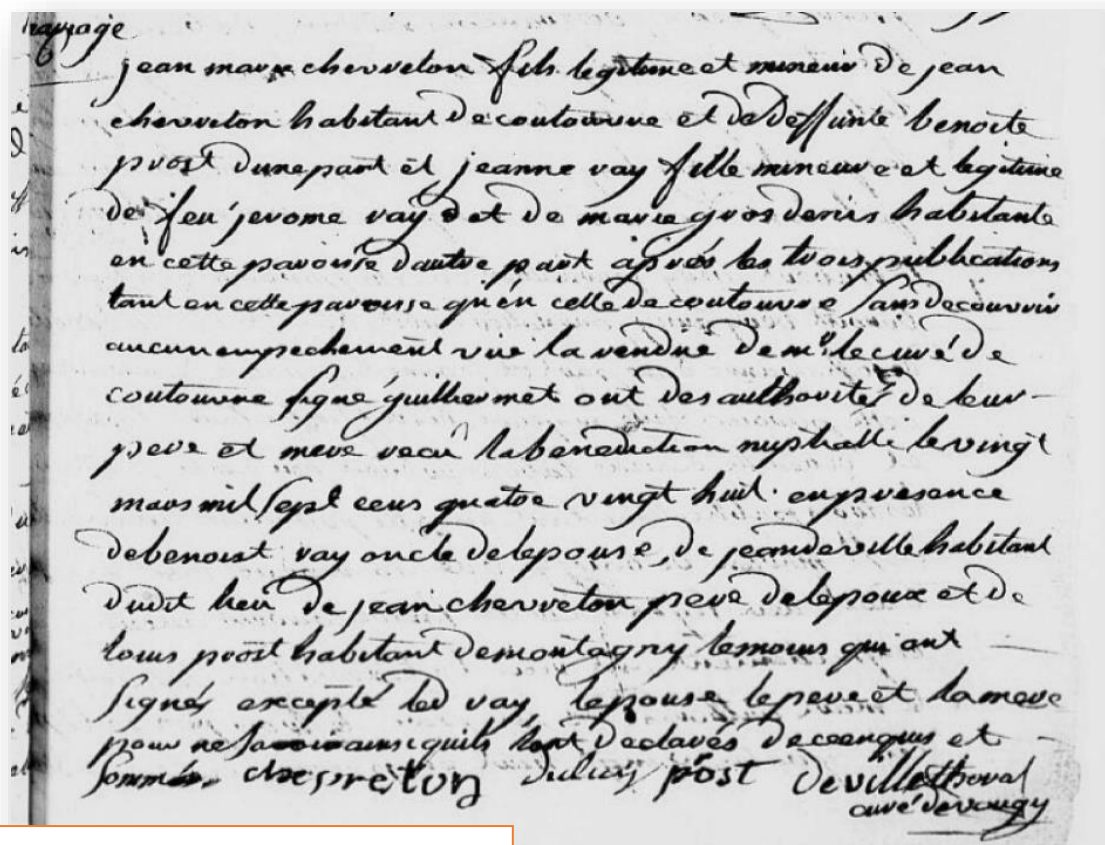 mariage
jean marie chervreton fils legitime et mineur de jean
chervreton habitant de coutouvre et de deffunte benoite
prost dune part et jeanne vay fille mineure et legitime
de feu jerome vay et de marie gros denis habitante
en cette paroisse dautre part après les trois publications
tant en cette paroisse qu'en celle de coutouvre sans decouvrir
aucun empechement vue la rendue de mr. le curé de
coutouvre signé guilhermet ont des authorités de leur
pere et mere reçu la benediction nuptialle le vingt
mars mil sept cens quatre vingt huit. en presence
de benoist vay oncle de lepouse, de jean deville habitant
dudit lieu de jean chervreton pere de lepoux et de
louis prost habitant de montagny temoins qui ont
signés excepté led vay, lepouse le pere et la mere
pour ne ainsi quils lont declarés de ce enquis et
sommés. chervreton post deville thoral
curé de vougy